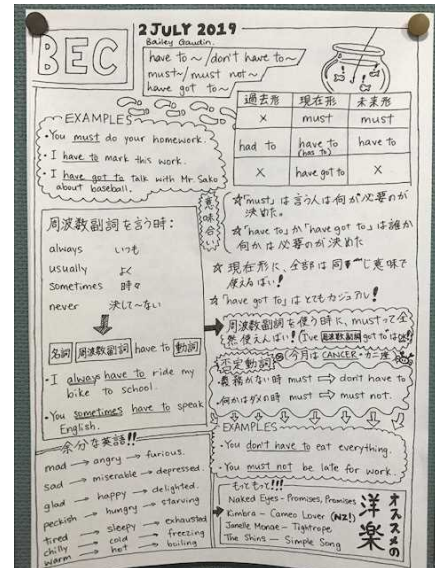 BEC
2 JULY 2019
Bailey Gaudin.
have to ~ / don't have to ~
must ~ / must not ~
have got to ~
EXAMPLES
• You must do your homework.
• I have to mark this work.
• I have got to talk with Mr. Sako
about baseball.
過去形 現在形 未来形
× must must
had to have to (has to) have to
× have got to ×
意味合い
☆「must」は言う人は何が必要のが
決めた。
☆「have to」か「have got to」は誰か
何かは必要のが決めた
☆ 現在形に、全部は同じ意味で
使えるばい!
☆「have got to」はとてもカジュアル!
周波数副詞を言う時:
always いつも
usually よく
sometimes 時々
never 決して~ない
名詞 周波数副詞 have to 動詞
• I always have to ride my
bike to school.
• You sometimes have to speak
English.
周波数副詞を使う時に、mustって全
然使えんばい! (I've 周波数副詞 got to は OK!)
否定動詞 (今月は CANCER・カニ座)
• 義務がない時 must ⇒ don't have to
• 何かはダメの時 must ⇒ must not.
EXAMPLES
• You don't have to eat everything.
• You must not be late for work.
余分な英語!!
mad → angry → furious.
sad → miserable → depressed.
glad → happy → delighted.
peckish → hungry → starving
tired → sleepy → exhausted
chilly → cold → freezing
warm → hot → boiling
もっともっと!!!
Naked Eyes - Promises, Promises
Kimbra - Cameo Lover (NZ!)
Janelle Monae - Tightrope
The Shins - Simple Song
オススメの
洋楽